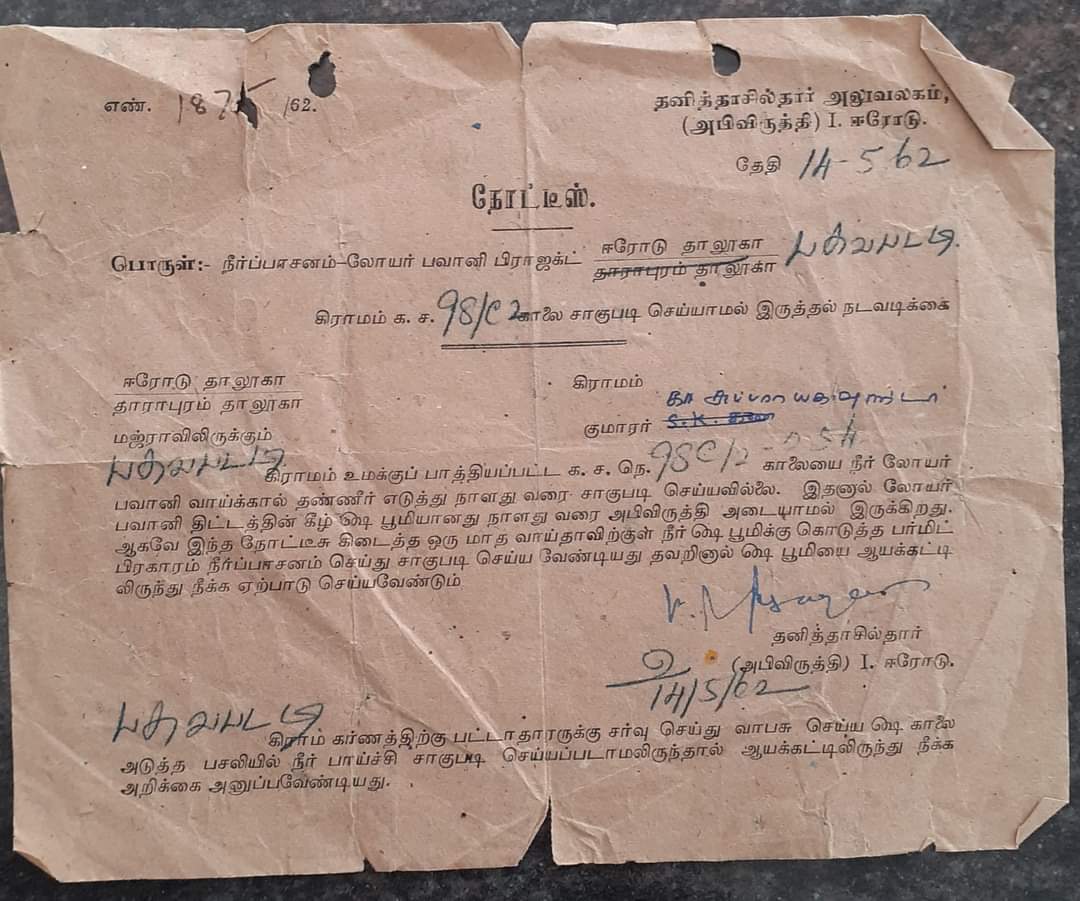 எண். 187 /62.
தனித்தாசில்தார் அலுவலகம்,
(அபிவிருத்தி) I. ஈரோடு.
தேதி 14-5-62
நோட்டீஸ்.
பொருள்:- நீர்ப்பாசனம்-லோயர் பவானி பிராஜக்ட் ஈரோடு தாலூகா
தாராபுரம் தாலூகா
கிராமம் க. ச. 98/C2 காலை சாகுபடி செய்யாமல் இருத்தல் நடவடிக்கை
ஈரோடு தாலூகா
தாராபுரம் தாலூகா
கிராமம்
மஜ்ராவிலிருக்கும்
குமாரர்
கிராமம் உமக்குப் பாத்தியப்பட்ட க. ச. நெ. 98C/2 காலையை நீர் லோயர்
பவானி வாய்க்கால் தண்ணீர் எடுத்து நாளது வரை சாகுபடி செய்யவில்லை. இதனால் லோயர்
பவானி திட்டத்தின் கீழ் ௸ பூமியானது நாளது வரை அபிவிருத்தி அடையாமல் இருக்கிறது.
ஆகவே இந்த நோட்டீசு கிடைத்த ஒரு மாத வாய்தாவிற்குள் நீர் ௸ பூமிக்கு கொடுத்த பர்மிட்
பிரகாரம் நீர்ப்பாசனம் செய்து சாகுபடி செய்ய வேண்டியது தவறினால் ௸ பூமியை ஆயக்கட்டி
லிருந்து நீக்க ஏற்பாடு செய்யவேண்டும்
தனித்தாசில்தார்
(அபிவிருத்தி) I. ஈரோடு.
14/5/62
கிராம கர்ணத்திற்கு பட்டாதாரருக்கு சர்வு செய்து வாபசு செய்ய ௸ காலை
அடுத்த பசலியில் நீர் பாய்ச்சி சாகுபடி செய்யப்படாமலிருந்தால் ஆயக்கட்டிலிருந்து நீக்க
அறிக்கை அனுப்பவேண்டியது.